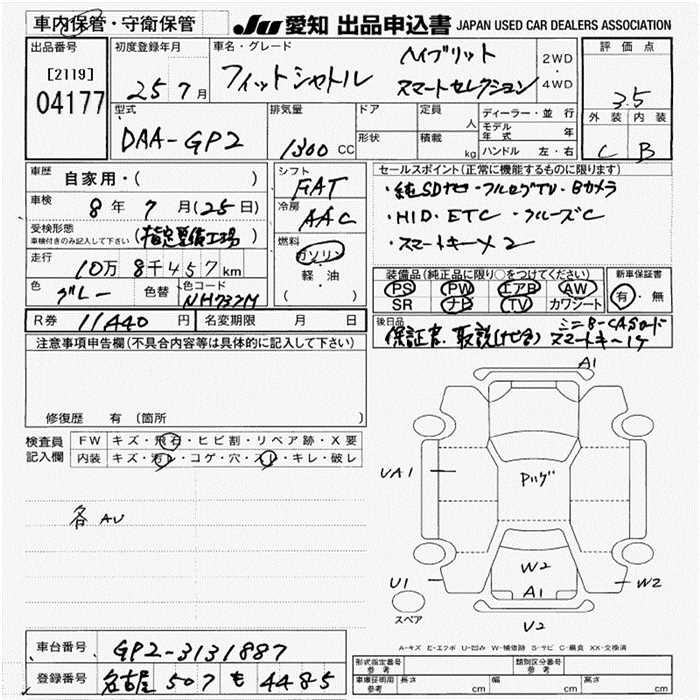 車内保管・守衛保管
JU 愛知 出品申込書 JAPAN USED CAR DEALERS ASSOCIATION
出品番号
[2119]
04177
初度登録年月
25 7月
車名・グレード
フィットシャトル
ハイブリット
スマートセレクション
2WD
4WD
評価点
3.5
外装 内装
C B
型式
DAA-GP2
排気量
1300 CC
ドア
形状
定員
人
積載
kg
ディーラー・並行
モデル年式 年
ハンドル 左・右
車歴
自家用・( )
車検
8年 7月(25日)
受検形態
車検付きのみ記入して下さい
(指定整備工場)
走行
10万8千457km
色
グレー
色替
色コード
NH737M
シフト
FAT
冷房
AAC
燃料
ガソリン
軽・油
( )
セールスポイント(正常に機能するものに限ります)
・純SDナビ・フルセグTV・Bカメラ
・HID・ETC・クルーズC
・スマートキー×2
装備品(純正品に限り○をつけてください)
PS PW エアB AW
SR ナビ TV カワシート
新車保証書
有・無
R券 11440円
名変期限 月 日
後日品
保証書、取説(ナビ含) ミニB-CASカード
スマートキー1ケ
注意事項申告欄(不具合内容等は具体的に記入して下さい)
修復歴 有 (箇所
検査員
記入欄
FW キズ・飛石・ヒビ割・リペア跡・X要
内装 キズ・汚レ・コゲ・穴・スレ・キレ・破レ
各AU
A1
UA1
Pハゲ
W2
A1
U1
W2
V2
スペア
A-キズ E-エクボ U-凹み W-補修跡 S-サビ C-腐食 XX-交換済
車台番号
GP2-3131887
登録番号
名古屋 507 も 4485
形式指定番号
参考
類別区分番号
参考
車庫証明用
参考
長さ cm
幅 cm
高さ cm